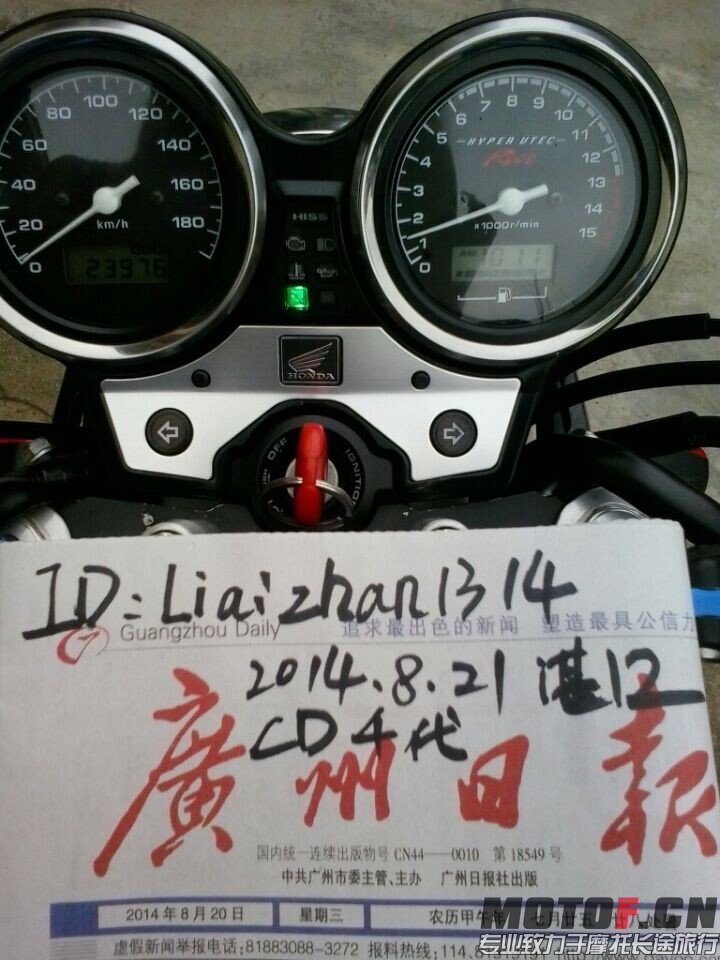 0 20 40 60 80 100 120 140 160 180
km/h
23976
HISS
0 1 2 3 4 5 6 7 8 9 10 11 12 13 14 15
HYPER VTEC
Rev
x1000r/min
HONDA
OFF
IGNITION
ID: Liaizhan1314
Guangzhou Daily 追求最出色的新闻 塑造最具公信力
2014.8.21 湛江
CD4代
廣州日報
国内统一连续出版物号 CN44——0010 第18549号
中共广州市委主管、主办 广州日报社出版
2014年8月20日 星期三 农历甲午年 七月廿五 廿八处暑
虚假新闻举报电话:81883088-3272 报料热线:114、8
MOTOF.CN
专业致力于摩托长途旅行